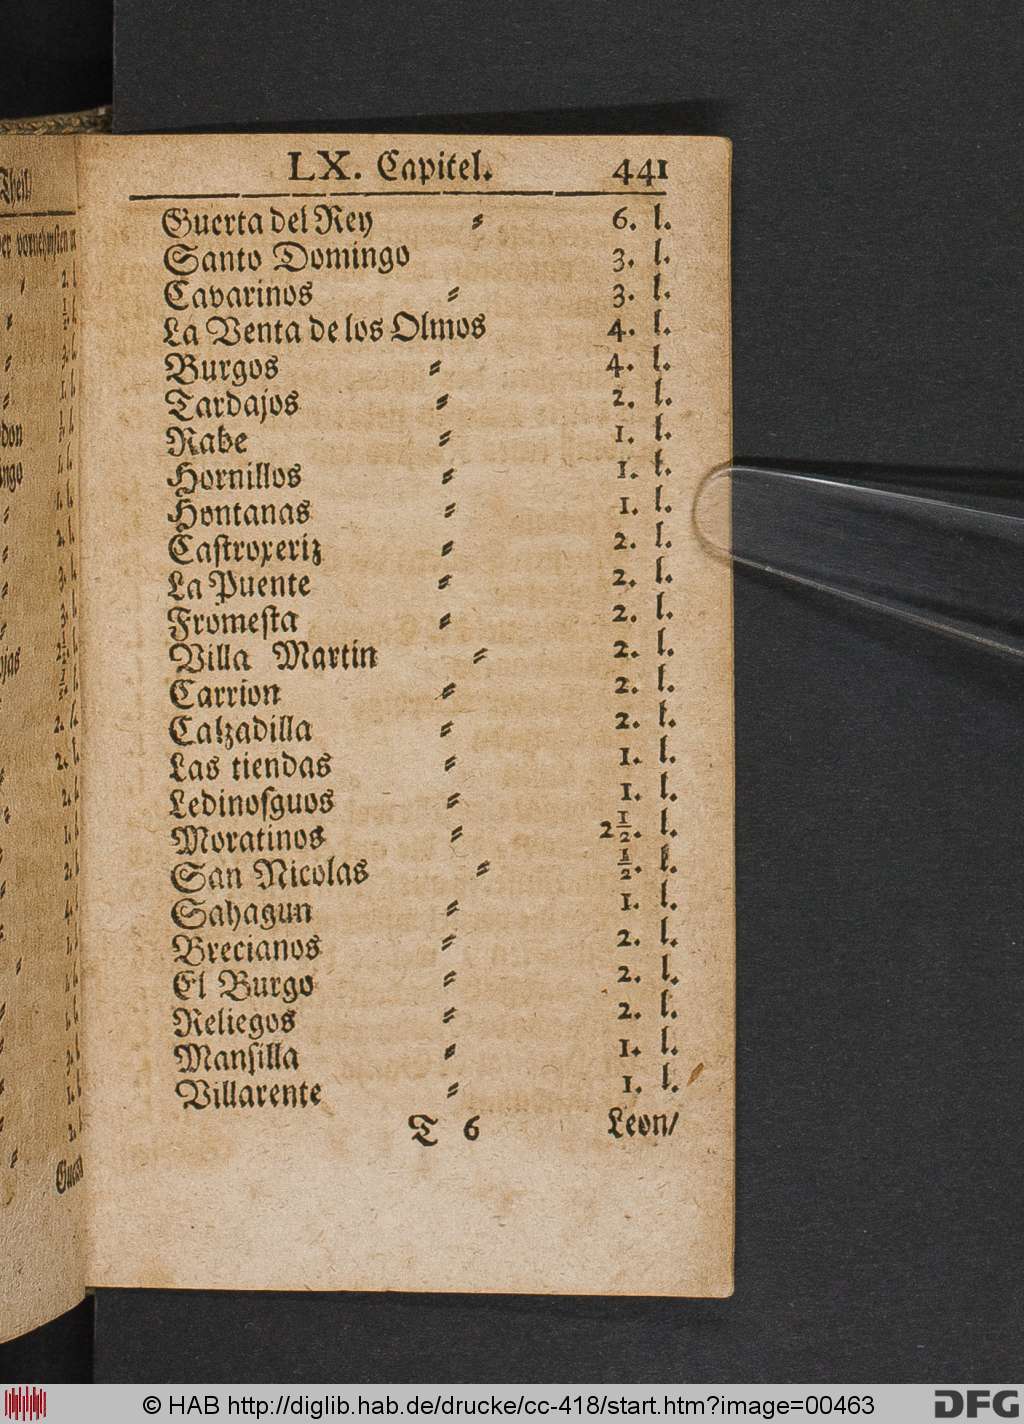 LX. Capitel. 441
Guerta del Rey ⸗ 6. l.
Santo Domingo 3. l.
Cavarinos ⸗ 3. l.
La Venta de los Olmos 4. l.
Burgos ⸗ 4. l.
Tardajos ⸗ 2. l.
Rabe ⸗ 1. l.
Hornillos ⸗ 1. l.
Hontanas ⸗ 1. l.
Caſtroxeriz ⸗ 2. l.
La Puente ⸗ 2. l.
Fromeſta ⸗ 2. l.
Villa Martin ⸗ 2. l.
Carrion ⸗ 2. l.
Calzadilla ⸗ 2. l.
Las tiendas ⸗ 1. l.
Ledinoſguos ⸗ 1. l.
Moratinos ⸗ 2½. l.
San Nicolas ⸗ ½. l.
Sahagun ⸗ 1. l.
Brecianos ⸗ 2. l.
El Burgo ⸗ 2. l.
Reliegos ⸗ 2. l.
Manſilla ⸗ 1. l.
Villarente ⸗ 1. l.
T 6 Leon/
© HAB http://diglib.hab.de/drucke/cc-418/start.htm?image=00463
DFG